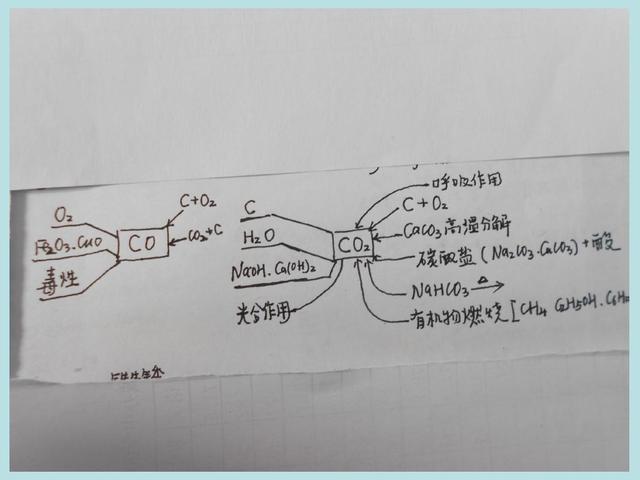 O₂
Fe₂O₃.CuO
毒性
CO
C+O₂
CO₂+C
C
H₂O
NaOH.Ca(OH)₂
光合作用
CO₂
呼吸作用
C+O₂
CaCO₃高温分解
碳酸盐(Na₂CO₃.CaCO₃)+酸
NaHCO₃ △
有机物燃烧[CH₄ C₂H₅OH.